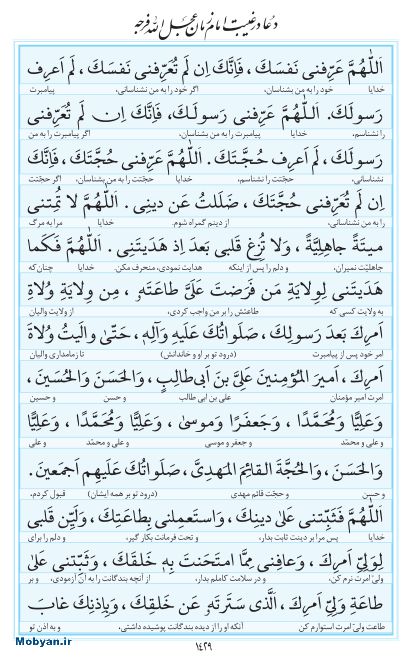 دعا در غیبت امام زمان عجل الله فرجه
اَللّٰهُمَّ عَرِّفنی نَفسَكَ ، فَاِنَّكَ اِن لَم تُعَرِّفنی نَفسَكَ ، لَم اَعرِف
خدایا خود را به من بشناسان، اگر خود را به من نشناسانی، پیامبرت
رَسولَكَ. اَللّٰهُمَّ عَرِّفنی رَسولَكَ، فَاِنَّكَ اِن لَم تُعَرِّفنی
را نشناسم، خدایا پیامبرت را به من بشناسان، اگر پیامبرت را به من
رَسولَكَ ، لَم اَعرِف حُجَّتَكَ . اَللّٰهُمَّ عَرِّفنی حُجَّتَكَ ، فَاِنَّكَ
نشناسانی، حجّتت را نشناسم، خدایا حجّتت را به من بشناسان، اگر حجّتت
اِن لَم تُعَرِّفنی حُجَّتَكَ ، ضَلَلتُ عَن دینی . اَللّٰهُمَّ لا تُمِتنی
را به من نشناسانی، از دینم گمراه شوم. خدایا مرا به مرگ
میتَةً جاهِلِیَّةً ، وَلا تُزِغ قَلبی بَعدَ اِذ هَدَیتَنی . اَللّٰهُمَّ فَكَما
جاهلیّت نمیران، و دلم را پس از اینکه هدایت نمودی، منحرف مکن. خدایا چنان‌که
هَدَیتَنی لِوِلایَةِ مَن فَرَضتَ عَلَیَّ طاعَتَهو ، مِن وِلایَةِ وُلاةِ
به ولایت کسی که طاعتش را بر من واجب کردی، از ولایت والیان
اَمرِكَ بَعدَ رَسولِكَ، صَلَواتُكَ عَلَیهِ وَآلِهٖ، حَتّیٰ والَیتُ وُلاةَ
امر خود پس از پیامبرت (درود تو بر او و خاندانش) تا زمامداری والیان
اَمرِكَ ، اَمیرَ المُؤمِنینَ عَلِیَّ بنَ اَبی‌طالِبٍ ، وَالحَسَنَ وَالحُسَینَ ،
امرت امیر مؤمنان علی بن ابی طالب و حسن و حسین
وَعَلِیًّا وَمُحَمَّدًا ، وَجَعفَرًا وَموسیٰ ، وَعَلِیًّا وَمُحَمَّدًا ، وَعَلِیًّا
و علی و محمّد و جعفر و موسی و علی و محمّد و علی
وَالحَسَنَ ، وَالحُجَّةَ القائِمَ المَهدِیَّ ، صَلَواتُكَ عَلَیهِم اَجمَعینَ .
و حسن و حجّت قائم مهدی (درود تو بر همه ایشان) قبول کردم.
اَللّٰهُمَّ فَثَبِّتنی عَلیٰ دینِكَ ، وَاستَعمِلنی بِطاعَتِكَ ، وَلَیِّن قَلبی
خدایا پس مرا بر دینت ثابت بدار، و تحت فرمانت بکار گیر، و دلم را برای
لِوَلِیِّ اَمرِكَ ، وَعافِنی مِمَّا امتَحَنتَ بِهٖ خَلقَكَ ، وَثَبِّتنی عَلیٰ
ولیّ امرت نرم کن، و در سلامت کاملم بدار، از آنچه بندگانت را به آن آزمودی، و بر
طاعَةِ وَلِیِّ اَمرِكَ ، اَلَّذی سَتَرتَهو عَن خَلقِكَ ، وَبِاِذنِكَ غابَ
طاعت ولیّ امرت استوارم کن آنکه او را از دیده بندگانت پوشیده داشتی، و به اذن تو
Mobyan.ir
۱۴۲۹